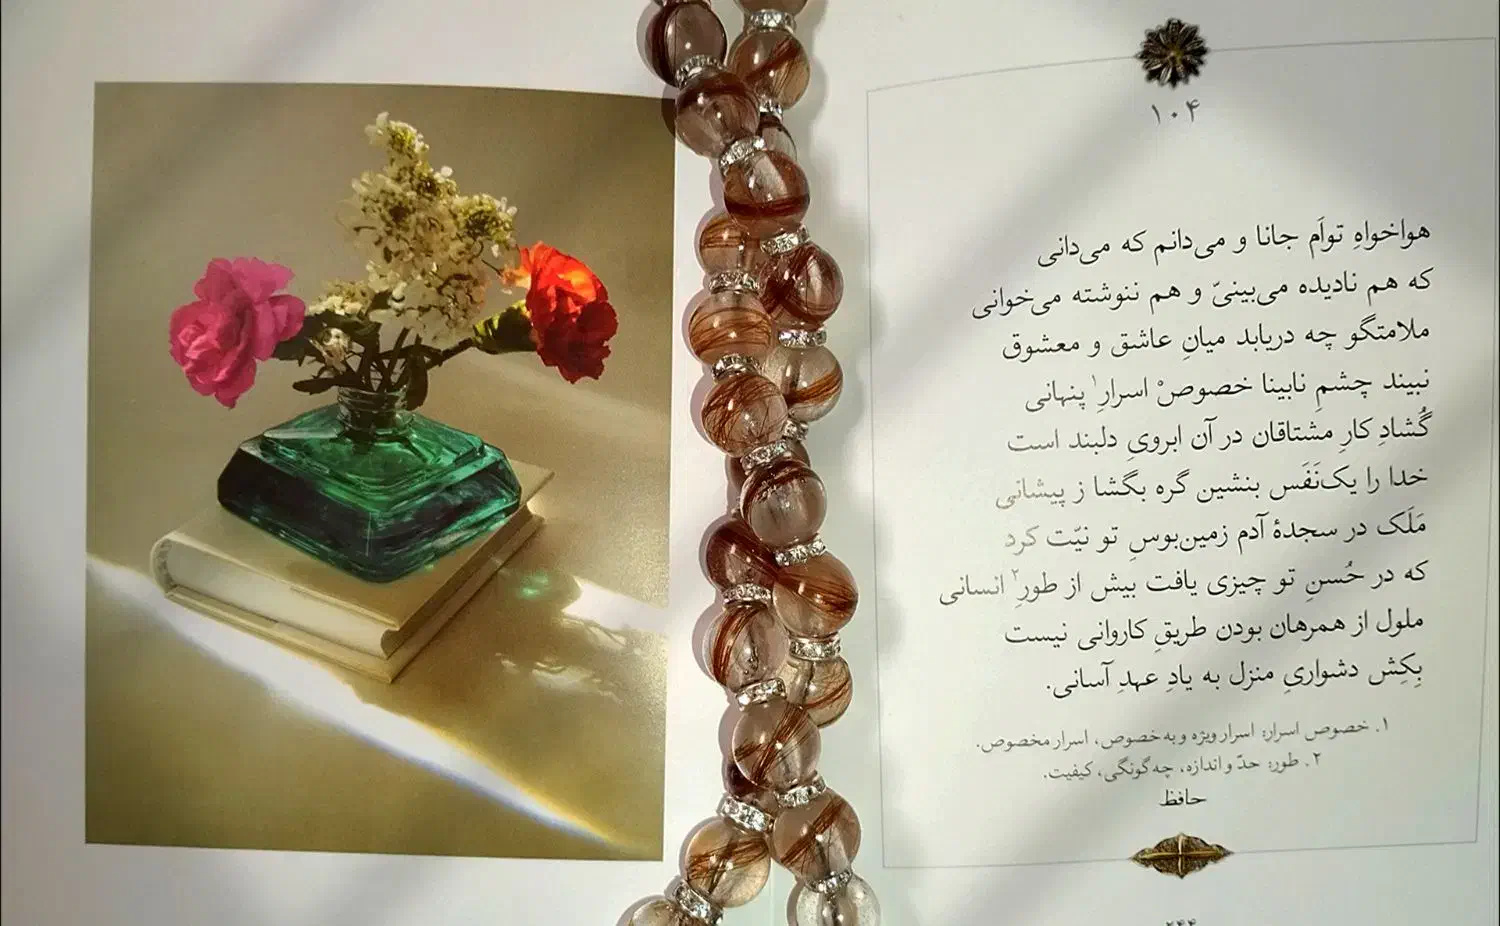 ۱۰۴
هواخواهِ تواَم جانا و می‌دانم که می‌دانی
که هم نادیده می‌بینیّ و هم ننوشته می‌خوانی
ملامتگو چه دریابد میانِ عاشق و معشوق
نبیند چشمِ نابینا خصوصْ اسرارِ۱ پنهانی
گُشادِ کارِ مشتاقان در آن ابرویِ دلبند است
خدا را یک‌نَفَس بنشین گره بگشا ز پیشانی
مَلَک در سجدهٔ آدم زمین‌بوسِ تو نیّت کرد
که در حُسنِ تو چیزی یافت بیش از طورِ۲ انسانی
ملول از همرهان بودن طریقِ کاروانی نیست
بِکِش دشواریِ منزل به یادِ عهدِ آسانی.
۱. خصوص اسرار: اسرار ویژه و به‌خصوص، اسرار مخصوص.
۲. طور: حدّ و اندازه، چه‌گونگی، کیفیت.
حافظ